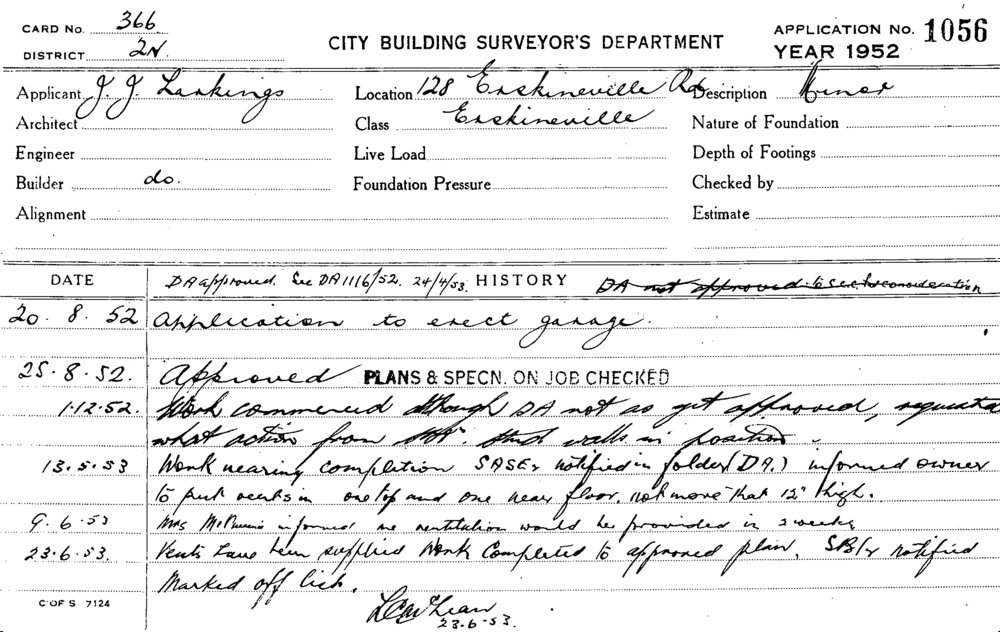 CARD NO. 366
DISTRICT 2N.
CITY BUILDING SURVEYOR'S DEPARTMENT
APPLICATION NO. 1056
YEAR 1952
Applicant J. J. Larkings Location 128 Erskineville Rd Description Minor
Architect Class Erskineville Nature of Foundation
Engineer Live Load Depth of Footings
Builder do. Foundation Pressure Checked by
Alignment Estimate
DATE DA approved. See DA 1116/52. 24/4/53. HISTORY DA not approved to See
20. 8. 52 Application to erect garage.
25. 8. 52. Approved PLANS & SPECN. ON JOB CHECKED
1.12.52. Work commenced although DA not as yet approved,
what action from walls in position.
13.5.53 Work nearing completion notified in folder (DA.) informed owner
to put vents in one top and one near floor. not more that 12" high.
9.6.53 Mrs informed me ventilation would be provided in 2 weeks
23.6.53. Vents have been supplied Work Completed to approved plan. notified
Marked off list.
23-6-53.
C OF S 7124